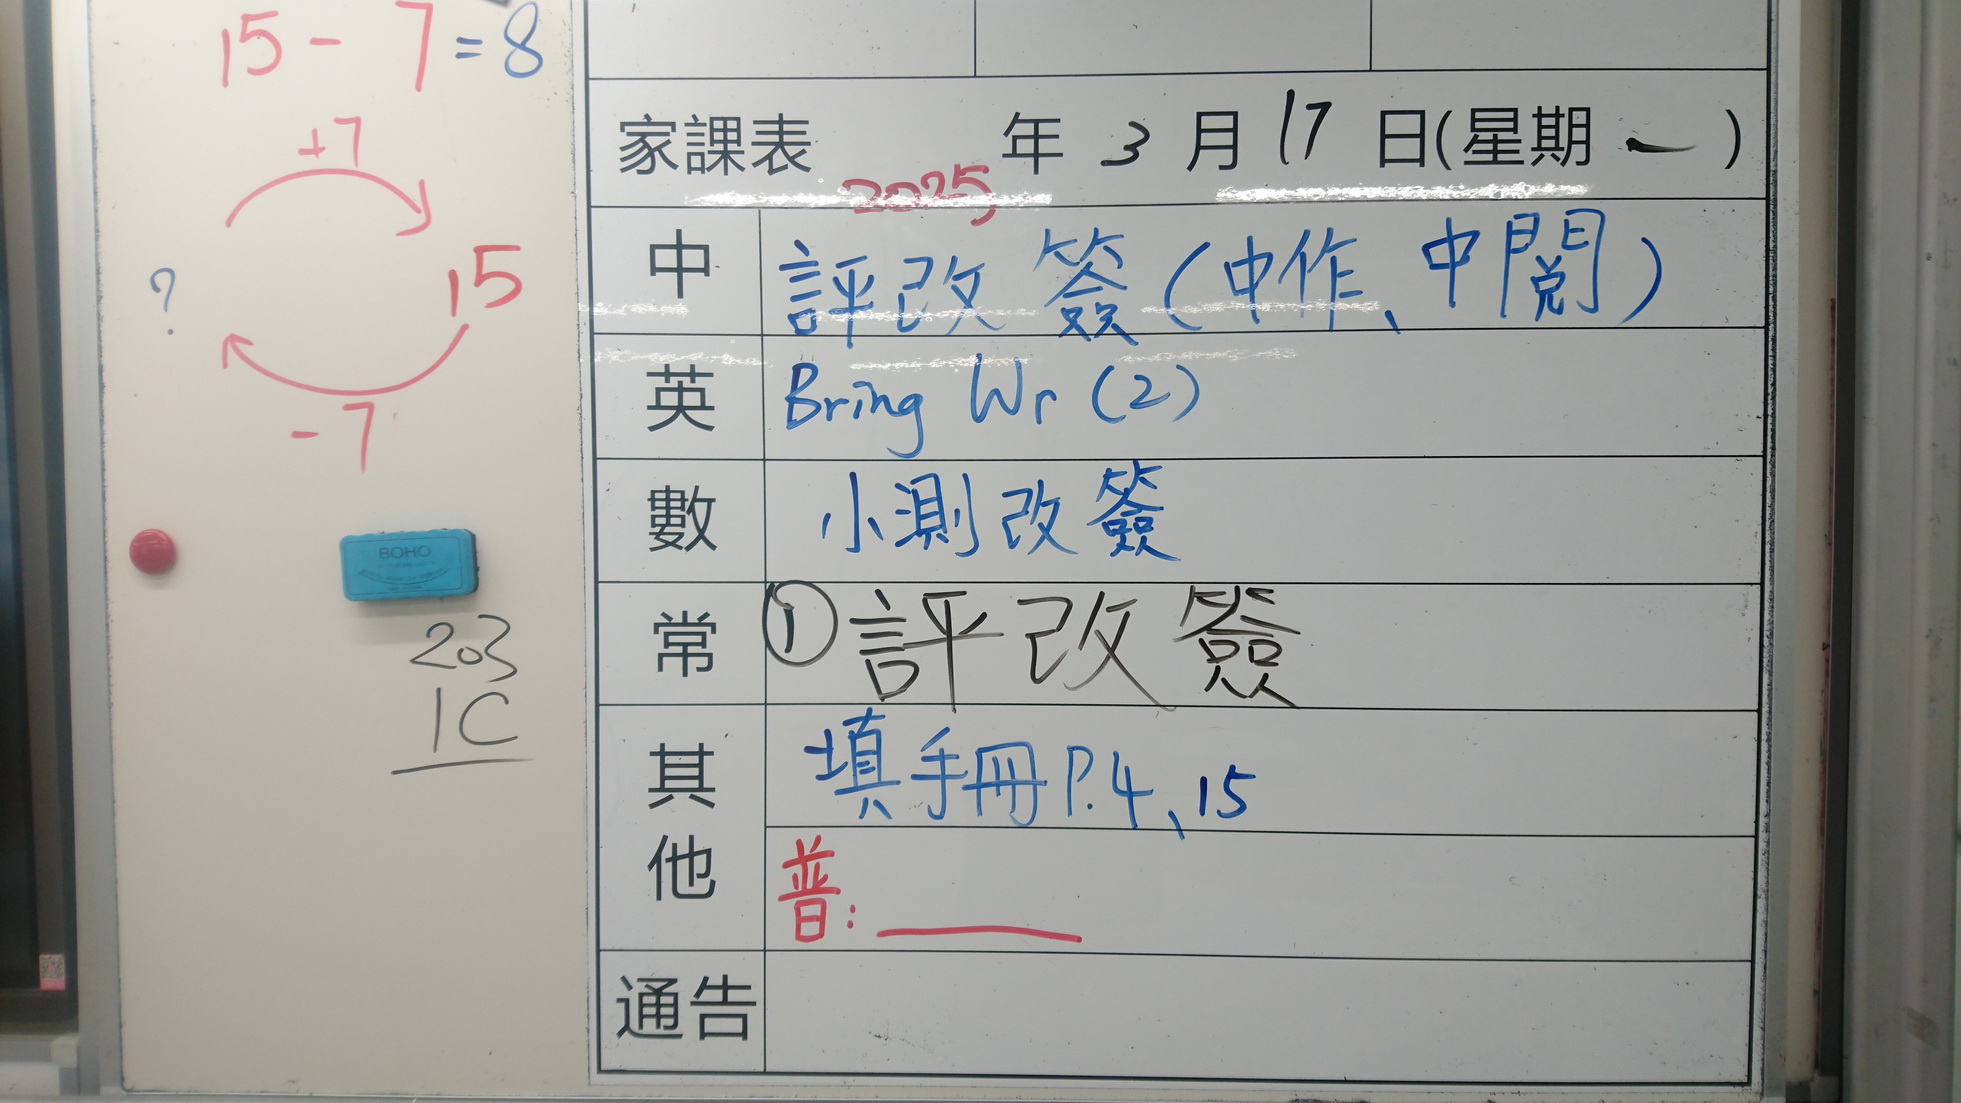 15 - 7 = 8
+7
15
?
-7
BOHO
203
1C
家課表 2025 年 3 月 17 日(星期 一 )
中 評改簽(中作、中閱)
英 Bring Wr (2)
數 小測改簽
常 ①評改簽
其他 填手冊P.4、15
普:
通告